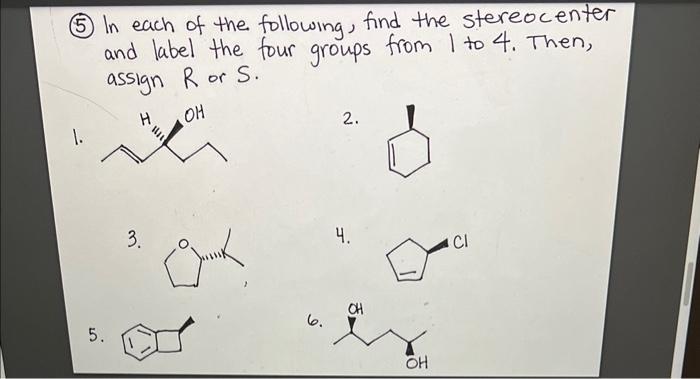 ⑤ In each of the following, find the stereocenter
and label the four groups from 1 to 4. Then,
assign R or S.
1.
H OH
2.
3.
O
4.
Cl
5.
6.
OH
OH